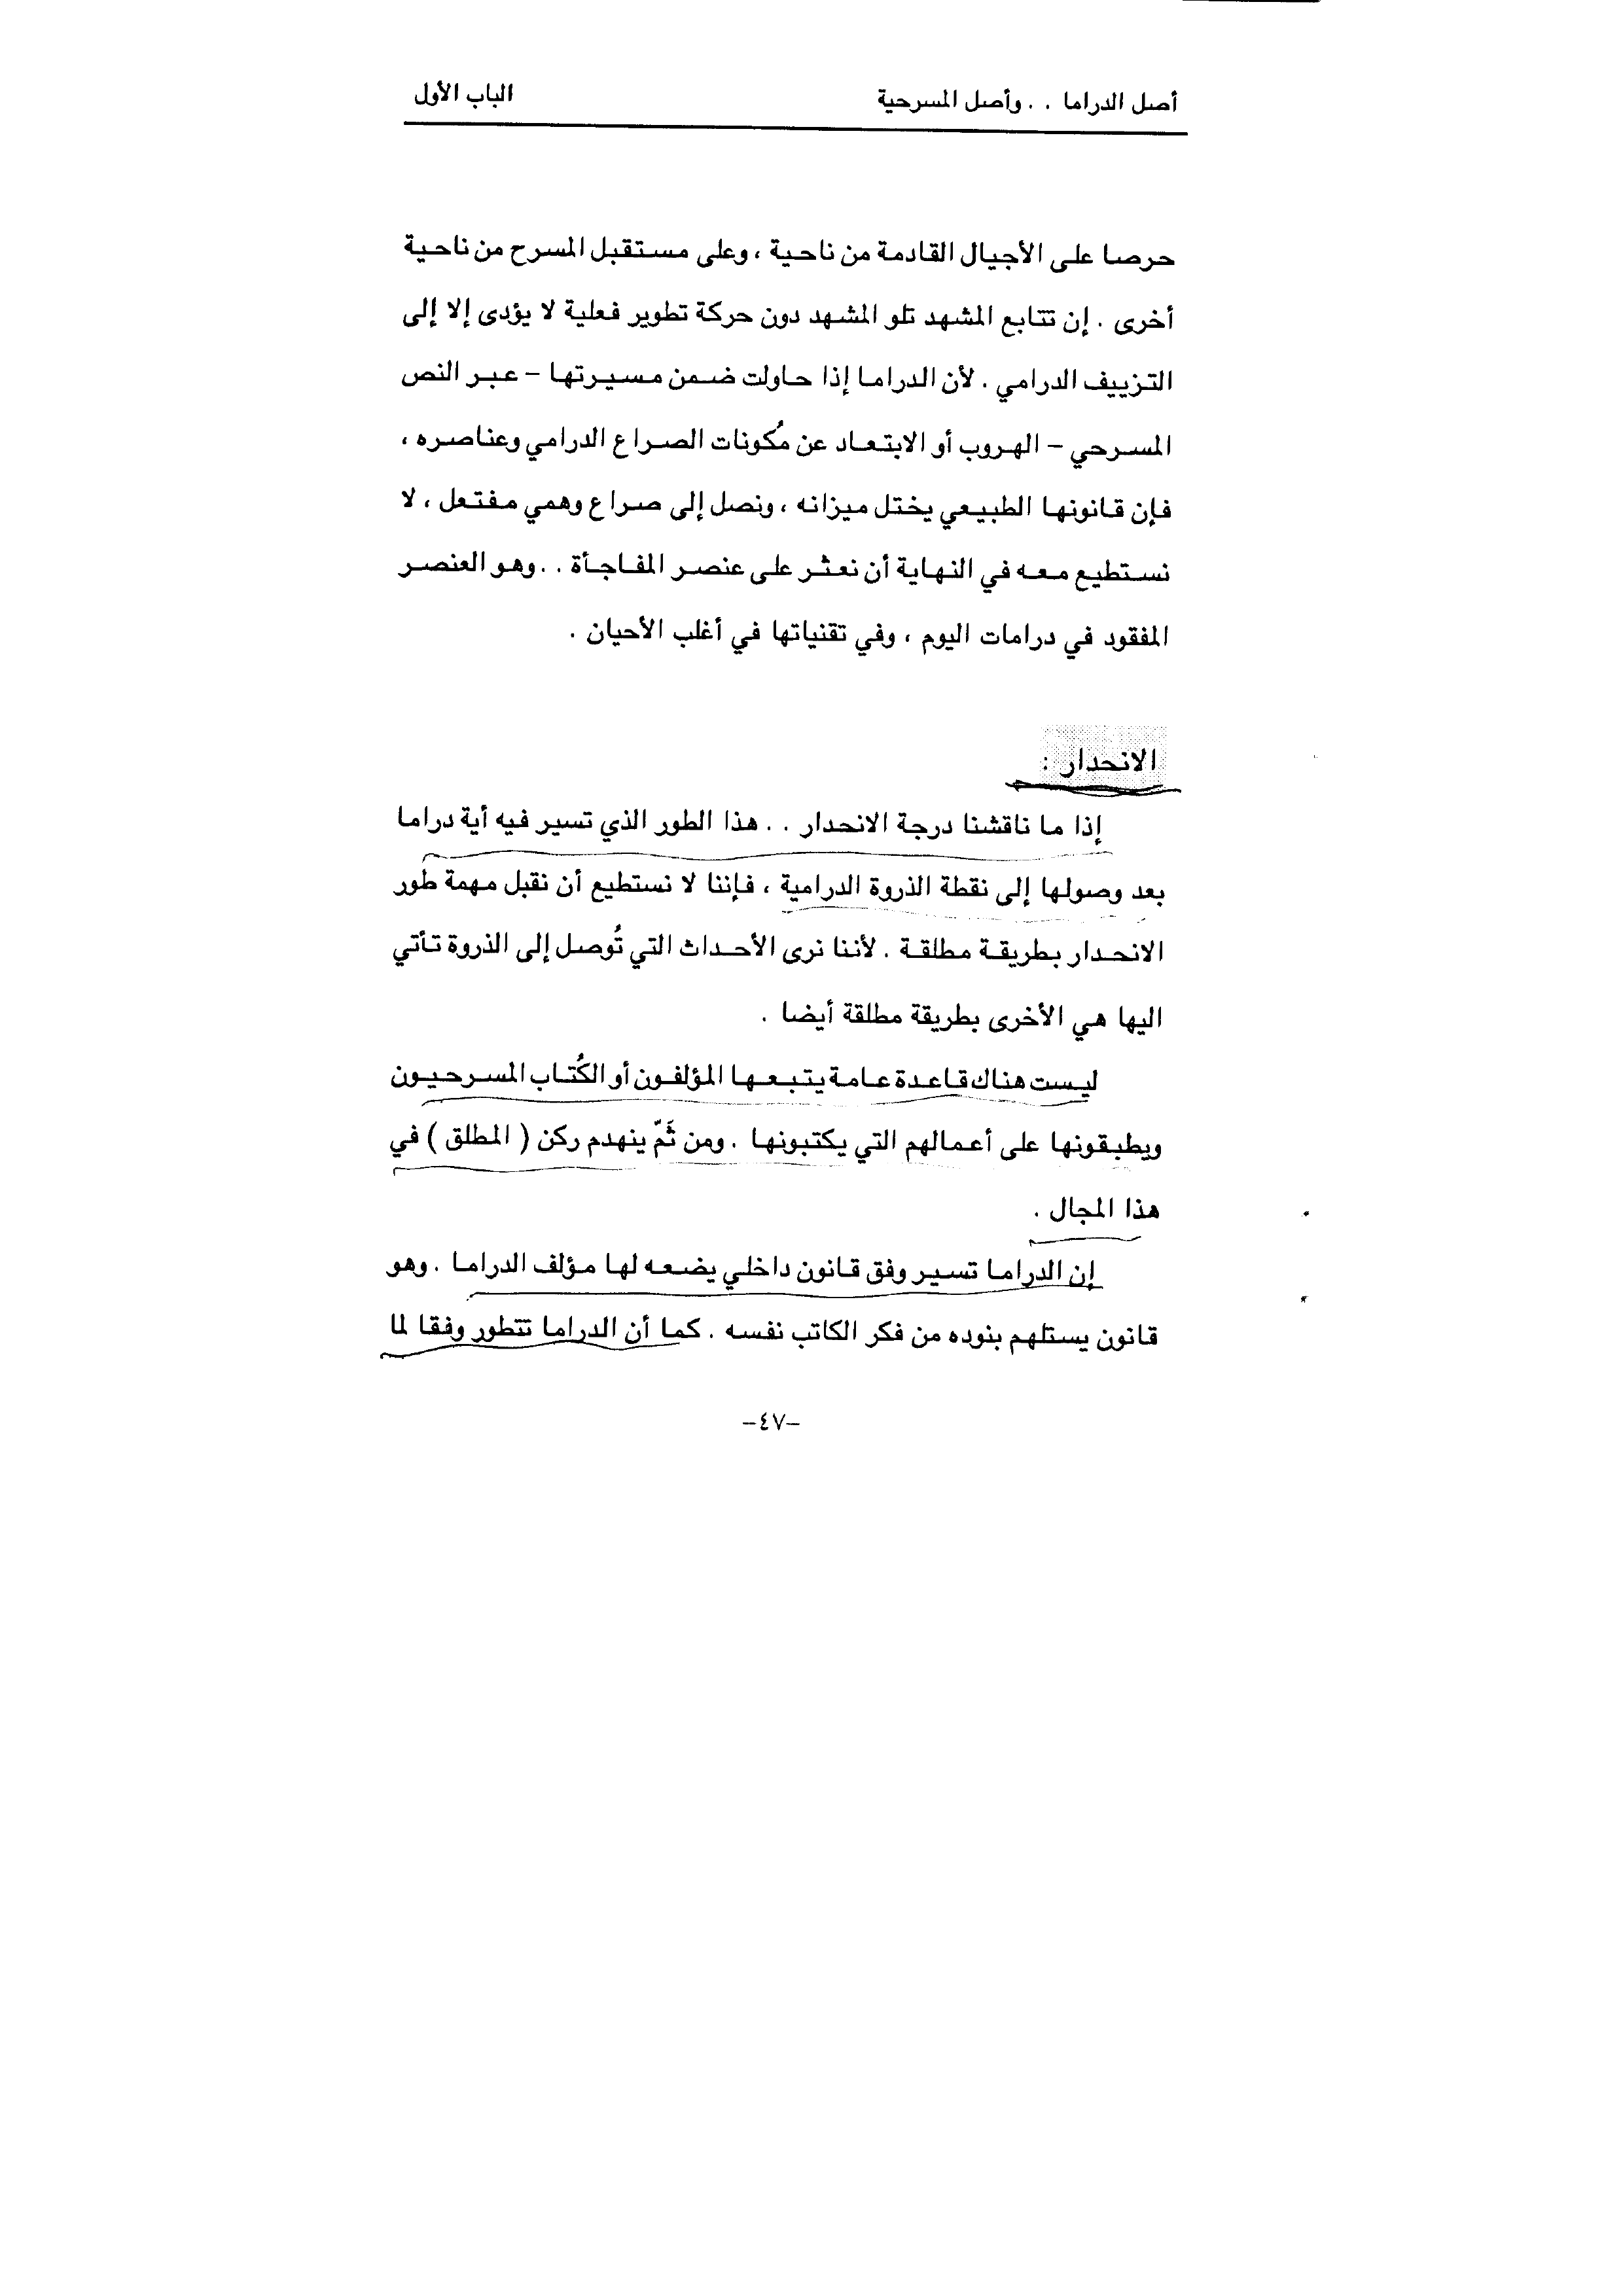 أصل الدراما . . وأصل المسرحية الباب الأول
حرصا على الأجيال القادمة من ناحية ، وعلى مستقبل المسرح من ناحية
أخرى . إن تتابع المشهد تلو المشهد دون حركة تطوير فعلية لا يؤدى إلا إلى
التزييف الدرامي . لأن الدراما إذا حاولت ضمن مسيرتها – عبر النص
المسرحي – الهروب أو الابتعاد عن مُكونات الصراع الدرامي وعناصره ،
فإن قانونها الطبيعي يختل ميزانه ، ونصل إلى صراع وهمي مفتعل ، لا
نستطيع معه في النهاية أن نعثر على عنصر المفاجأة . . وهو العنصر
المفقود في درامات اليوم ، وفي تقنياتها في أغلب الأحيان .
الانحدار :
إذا ما ناقشنا درجة الانحدار . . هذا الطور الذي تسير فيه أية دراما
بعد وصولها إلى نقطة الذروة الدرامية ، فإننا لا نستطيع أن نقبل مهمة طور
الانحدار بطريقة مطلقة . لأننا نرى الأحداث التي تُوصل إلى الذروة تأتي
اليها هي الأخرى بطريقة مطلقة أيضا .
ليست هناك قاعدة عامة يتبعها المؤلفون أو الكُتاب المسرحيون
ويطبقونها على أعمالهم التي يكتبونها . ومن ثَمّ ينهدم ركن ( المطلق ) في
هذا المجال .
إن الدراما تسير وفق قانون داخلي يضعه لها مؤلف الدراما . وهو
قانون يستلهم بنوده من فكر الكاتب نفسه . كما أن الدراما تتطور وفقا لما
–٤٧–